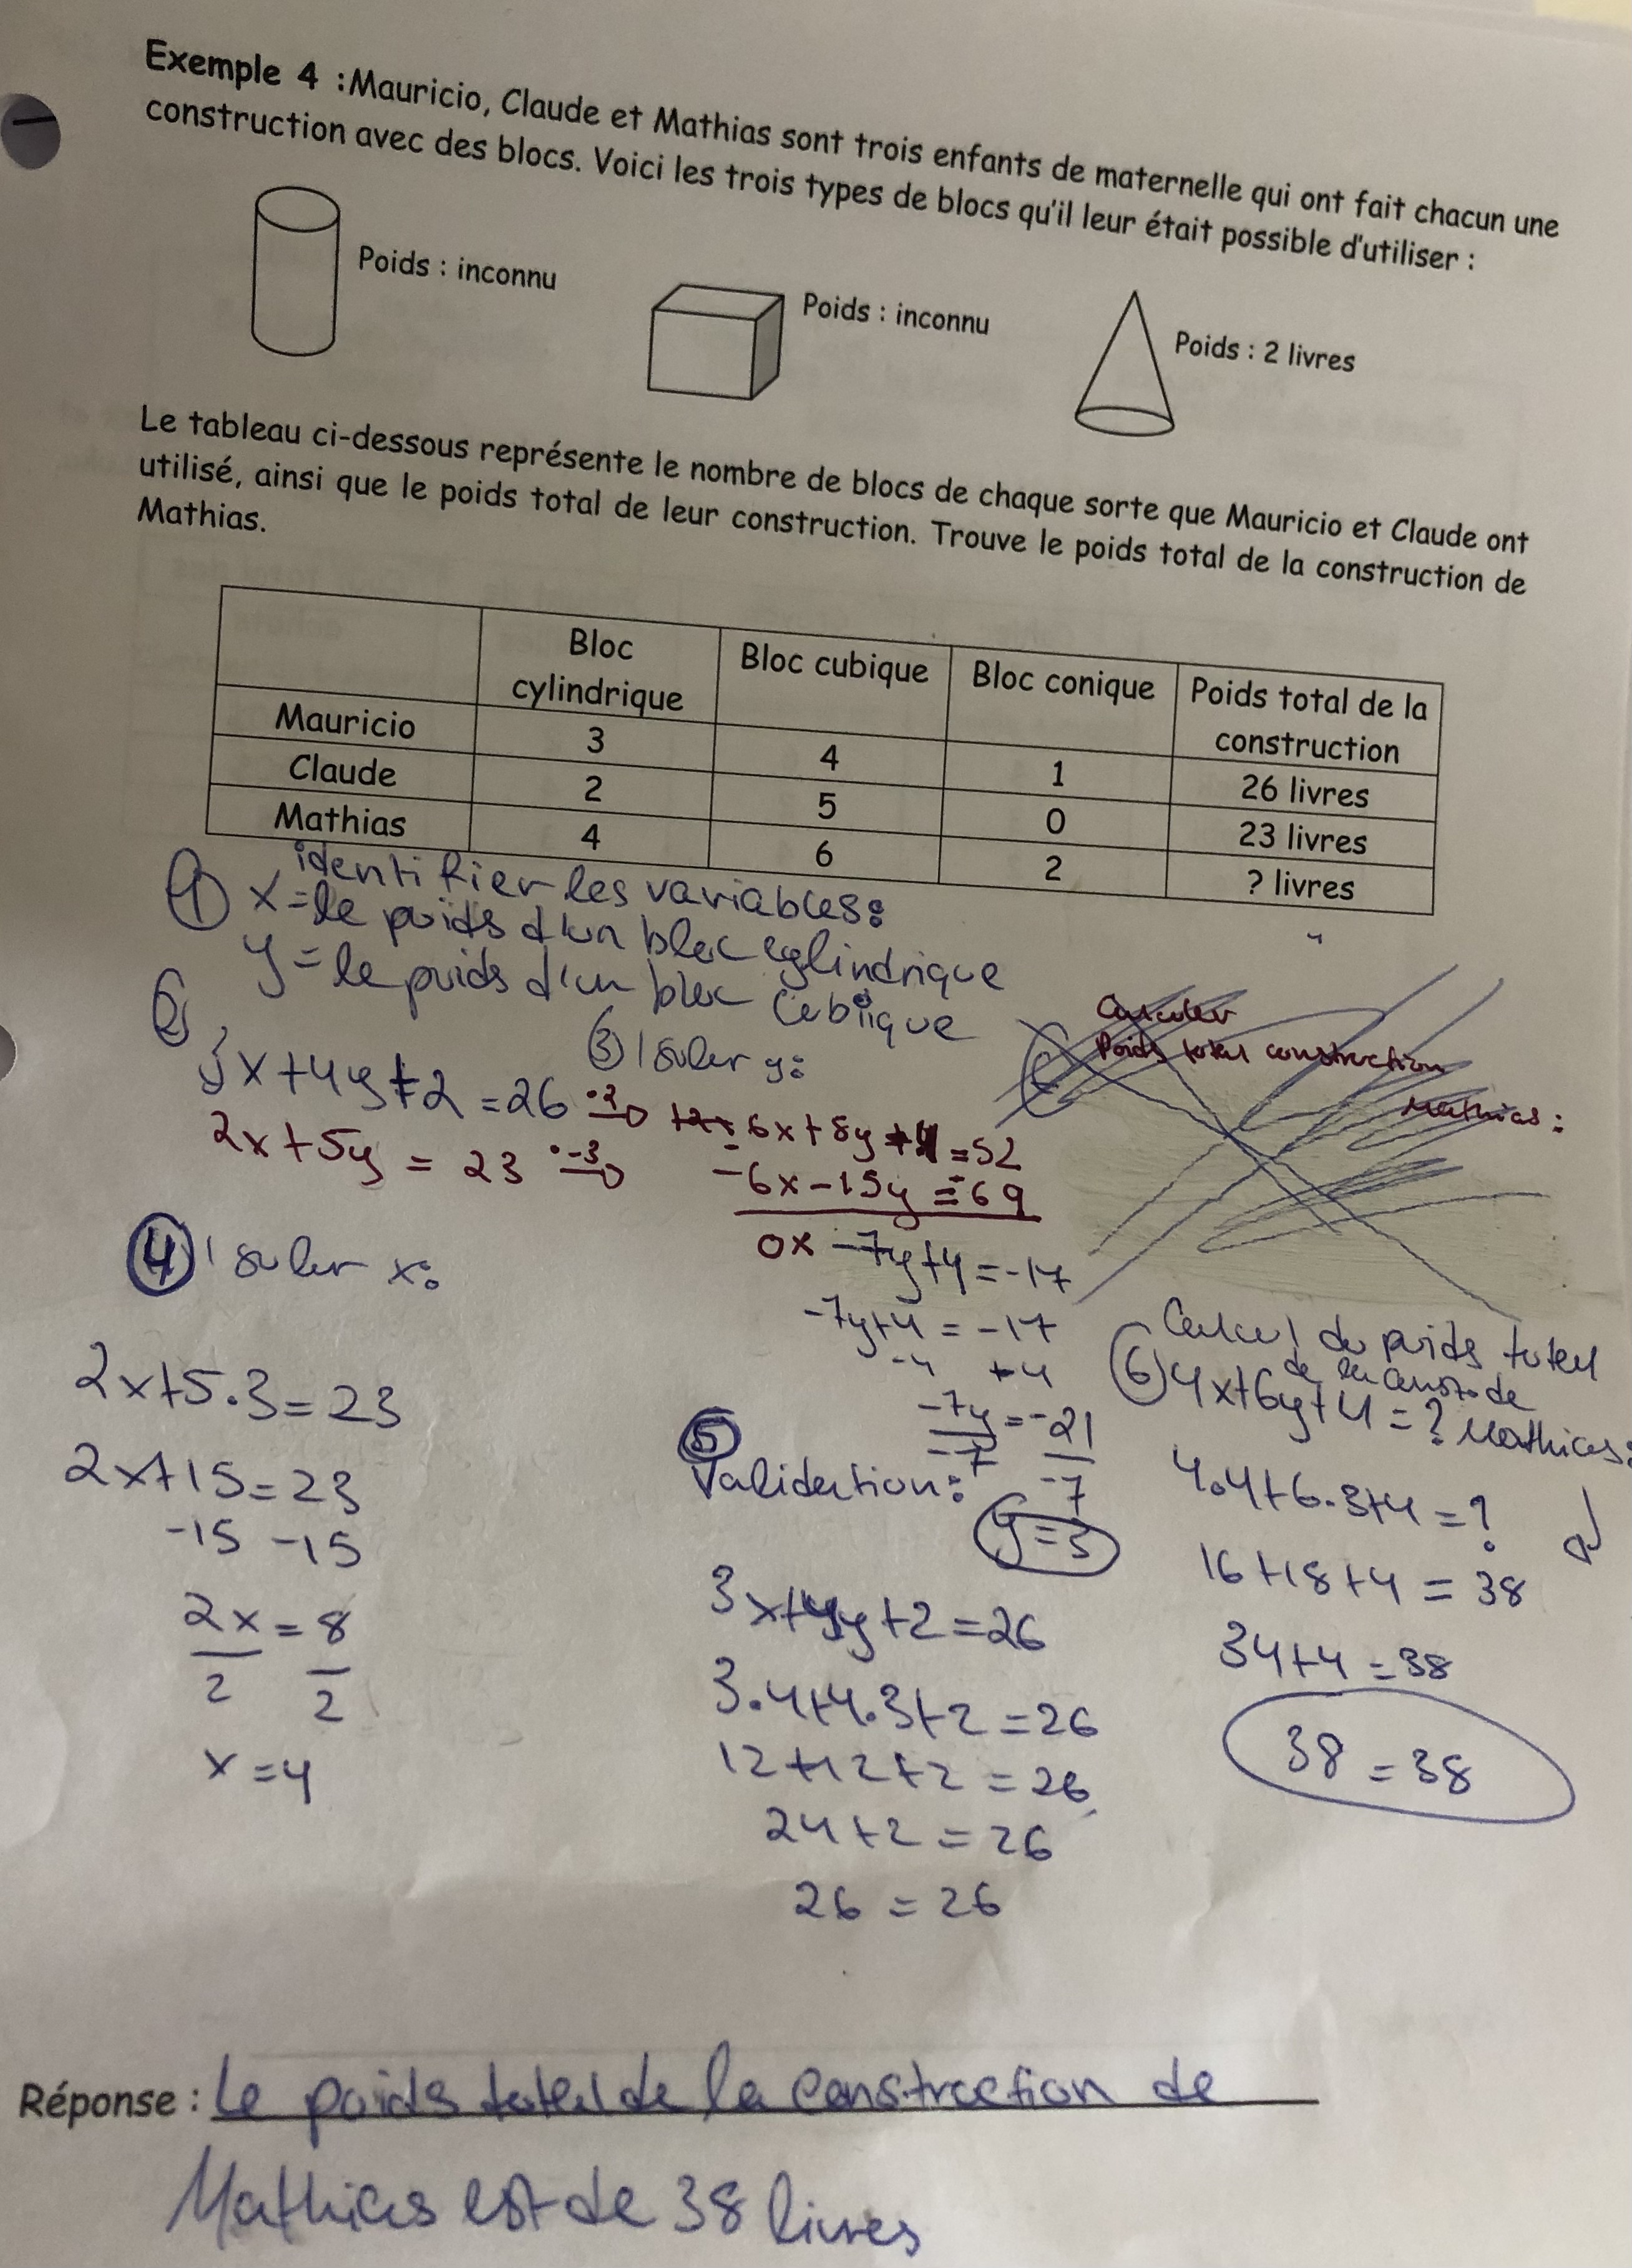 Exemple 4 :Mauricio, Claude et Mathias sont trois enfants de maternelle qui ont fait chacun une
construction avec des blocs. Voici les trois types de blocs qu'il leur était possible d'utiliser :
Poids : inconnu
Poids : inconnu
Poids : 2 livres
Le tableau ci-dessous représente le nombre de blocs de chaque sorte que Mauricio et Claude ont
utilisé, ainsi que le poids total de leur construction. Trouve le poids total de la construction de
Mathias.
Bloc cylindrique Bloc cubique Bloc conique Poids total de la construction
Mauricio 3 4 1 26 livres
Claude 2 5 0 23 livres
Mathias 4 6 2 ? livres
① identifier les variables:
x = le poids d'un bloc cylindrique
y = le poids d'un bloc cubique
②
3x+4y+2 = 26 ·2
2x+5y = 23 ·-3
③ Isoler y:
6x+8y+4 = 52
-6x-15y = -69
0x -7y+4 = -17
-7y+4 = -17
-4 +4
-7y = -21
-7 -7
y = 3
Calculer
Poids total construction
Mathias :
④ Isoler x:
2x+5·3 = 23
2x+15 = 23
-15 -15
2x = 8
2 2
x = 4
⑤
Validation:
3x+4y+2 = 26
3·4+4·3+2 = 26
12+12+2 = 26
24+2 = 26
26 = 26
Calcul du poids total
de la const. de
⑥ 4x+6y+4 = ? Mathias:
4·4+6·3+4 = ?
16+18+4 = 38
34+4 = 38
38 = 38
Réponse : Le poids total de la construction de
Mathias est de 38 livres